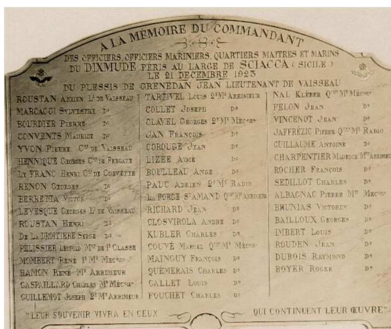 A LA MEMOIRE DU COMMANDANT
DES OFFICIERS, OFFICIERS MARINIERS, QUARTIERS MAITRES ET MARINS
DU DIXMUDE PERIS AU LARGE DE SCIACCA (SICILE)
LE 21 DECEMBRE 1923
DU PLESSIS DE GRENEDAN JEAN LIEUTENANT DE VAISSEAU
ROUSTAN ADRIEN Lt DE VAISSEAU
MARCAGGI SYLVESTRE Do
BOURDIER PIERRE Do
CONVENTS MAURICE Do
YVON PIERRE Ce DE VAISSEAU
HENNIQUE GEORGES Ce DE FREGATE
Le FRANC HENRI Ce DE CORVETTE
RENON GEORGES
BERRENIA VICTOR Do
LEVESQUE GEORGES Lt DE VAISSEAU
ROUSTAN HENRI Do
DE LA CROTIERE SERGE Do
PELISSIER LEOPOLD Mtre DE 1e CLASSE
MOMBERT RENE
HAMON RENE Mt ARRIMEUR
GASPAILLARD CHARLES
GUILLEMOT JOSEPH 2d Mt ARRIMEUR
TARTIVEL LOUIS 2d Mt ARRIMEUR
COLLET JOSEPH Do
CLAVEL GEORGES
JAN FRANCOIS Do
COROLLE JEAN Do
LIZEE AIME Do
BOELLEAU ANGE Do
PAUC ADRIEN 2d Mt RADIO
LAFORGE
RICHARD JEAN Do
CLOSVIROLA ANDRE Do
KUBLER CHARLES Do
COUVE MARCEL
MAINGUY FRANCOIS Do
QUEMERAIS CHARLES Do
GALLET LOUIS Do
FOUCHET CHARLES Do
NAL KLEBER
FELON JEAN Do
VINCENOT JEAN Do
JAFFREZIC PIERRE
GUILLAUME ANTOINE Do
CHARPENTIER MAURICE
ROCHER FRANCOIS Do
SEDILLOT CHARLES Do
ALBAGNAC PIERRE
BRUNIAS VICTORIN Do
BAILLOUX GEORGES Do
IMBERT LOUIS Do
ROUDEN JEAN Do
DUBOIS RAYMOND Do
BOYER ROGER Do
"LEUR SOUVENIR VIVRA EN CEUX QUI CONTINUENT LEUR ŒUVRE"